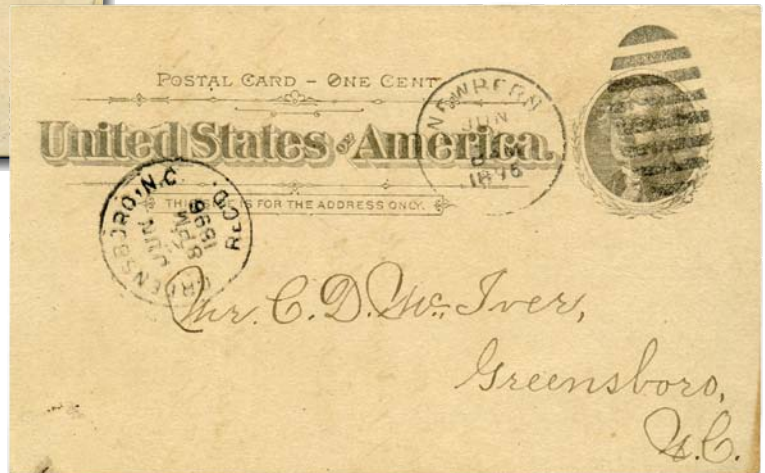 POSTAL CARD – ONE CENT
United States OF America.
THIS SIDE IS FOR THE ADDRESS ONLY.
NEWBERN
JUN
1896
GREENSBORO, N.C.
JUN
8 PM
1896
REC'D.
Mr. C. D. Mc. Iver,
Greensboro,
N.C.